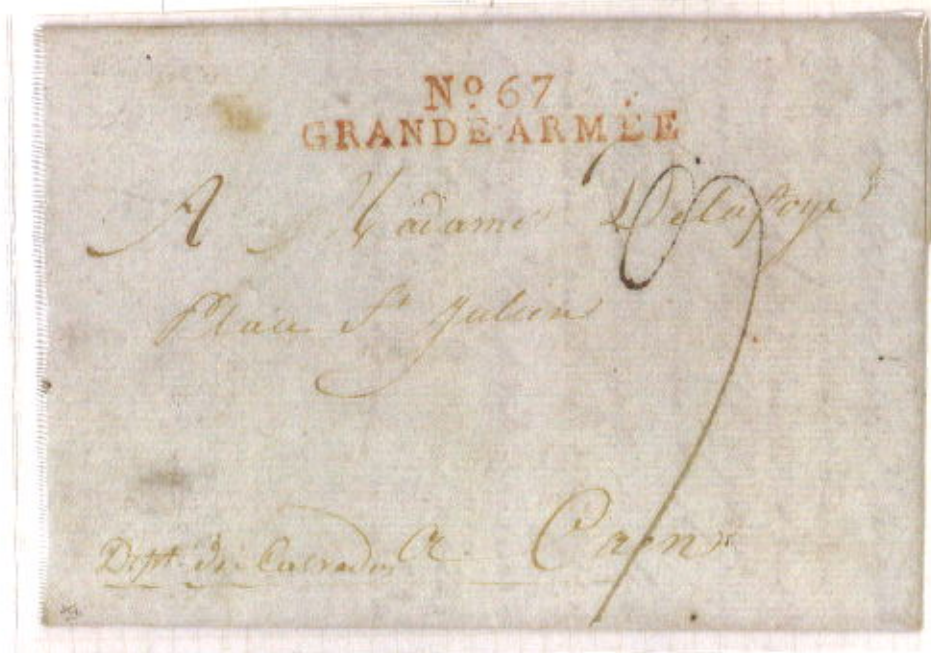 Nº 67
GRANDE ARMÉE
A Madame Delafoye
Place St Julien
Dept. du Calvados A Caen